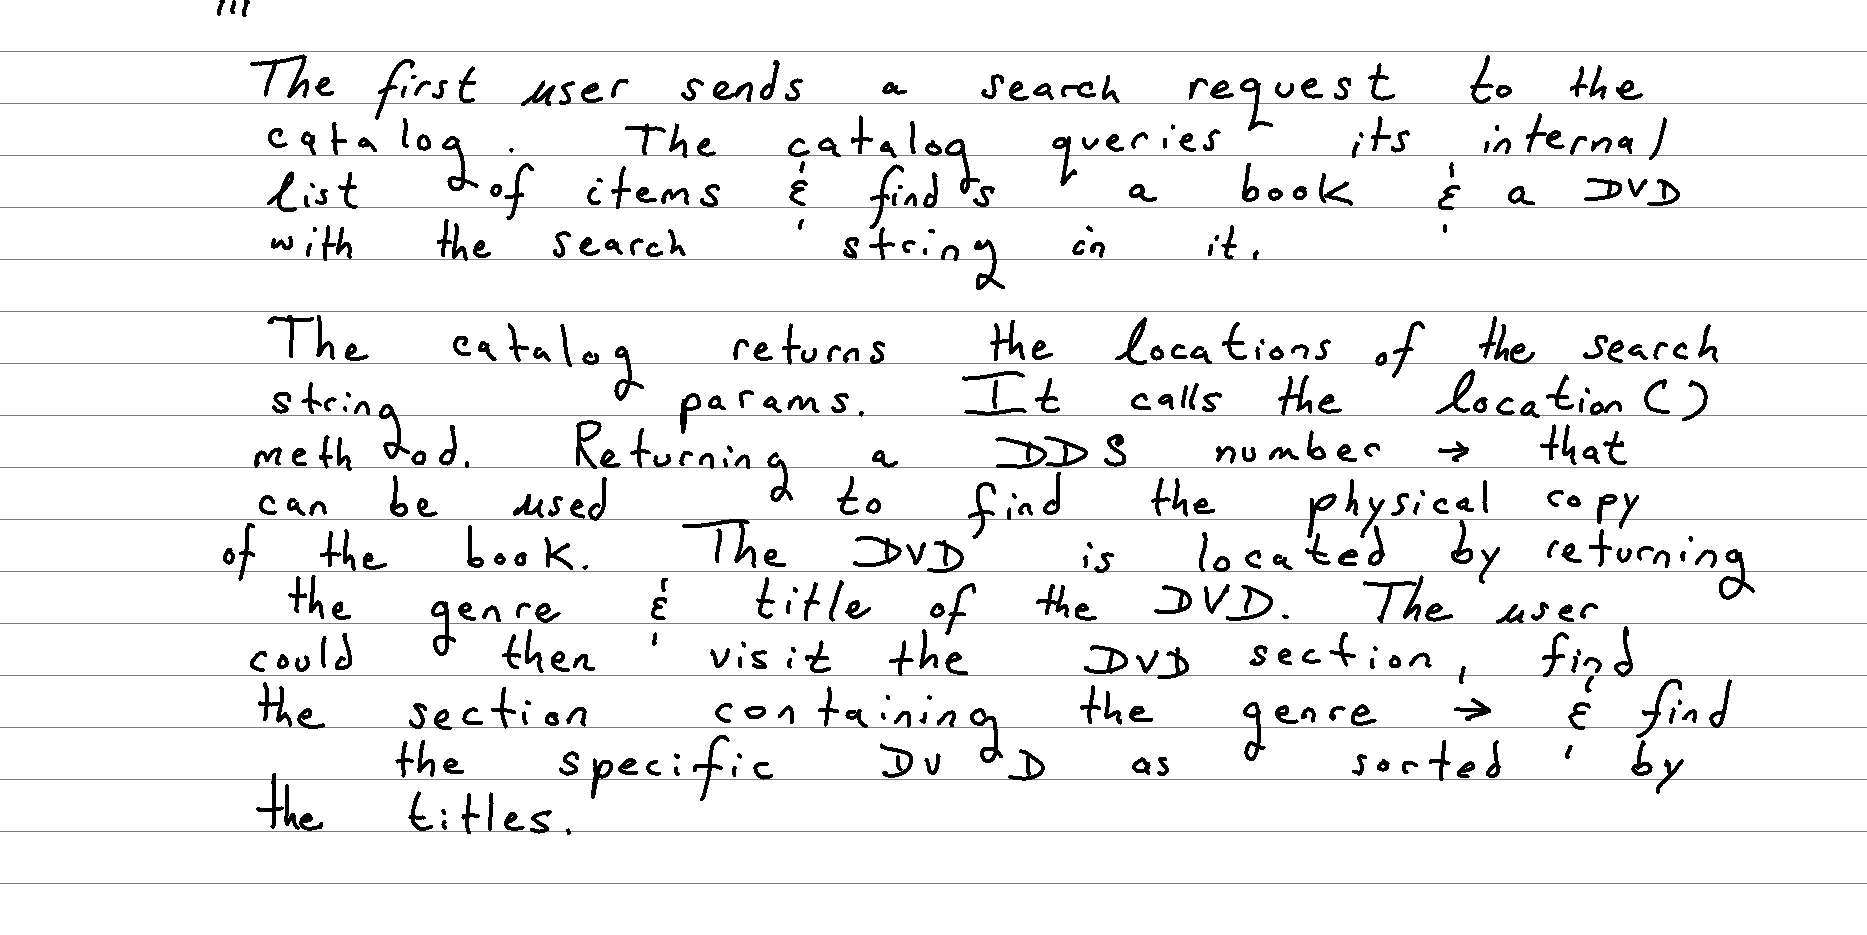 The first user sends a search request to the
catalog. The catalog queries its internal
list of items & finds a book & a DVD
with the search string in it.
The catalog returns the locations of the search
string params. It calls the location()
method. Returning a DDS number → that
can be used to find the physical copy
of the book. The DVD is located by returning
the genre & title of the DVD. The user
could then visit the DVD section, find
the section containing the genre → & find
the specific DVD as sorted by
the titles.